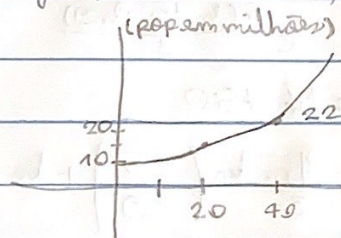 (pop em milhões)
22
20
10
20 40